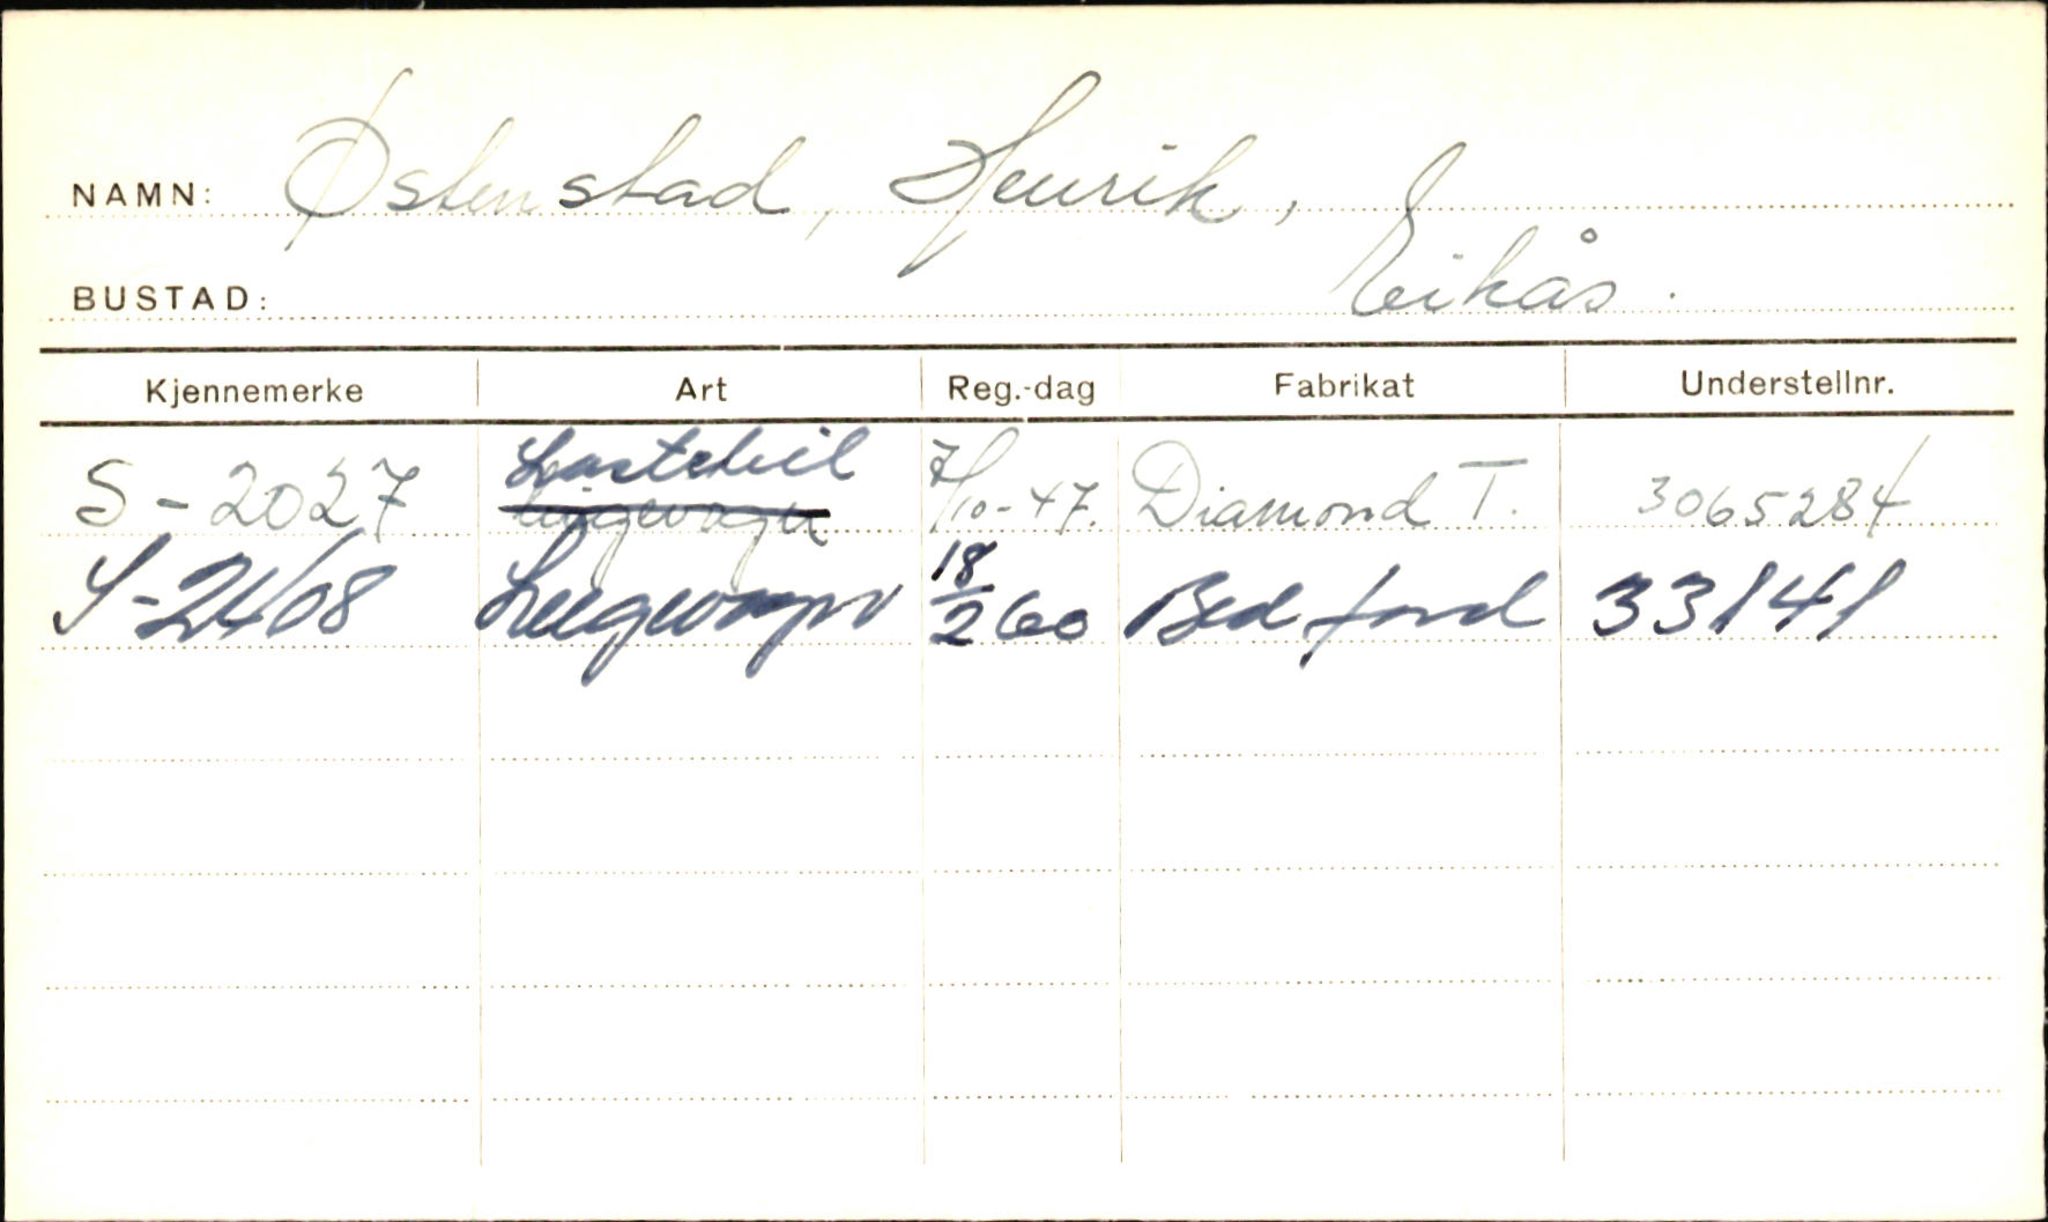 NAMN: Østenstad, Henrik,
BUSTAD: Eikås.
Kjennemerke Art Reg.-dag Fabrikat Understellnr.
Lastebil
S-2027 leigevogn 7/10-47. Diamond T. 3065284
S-2408 Leigevogn 18/2 60 Bedford 33141